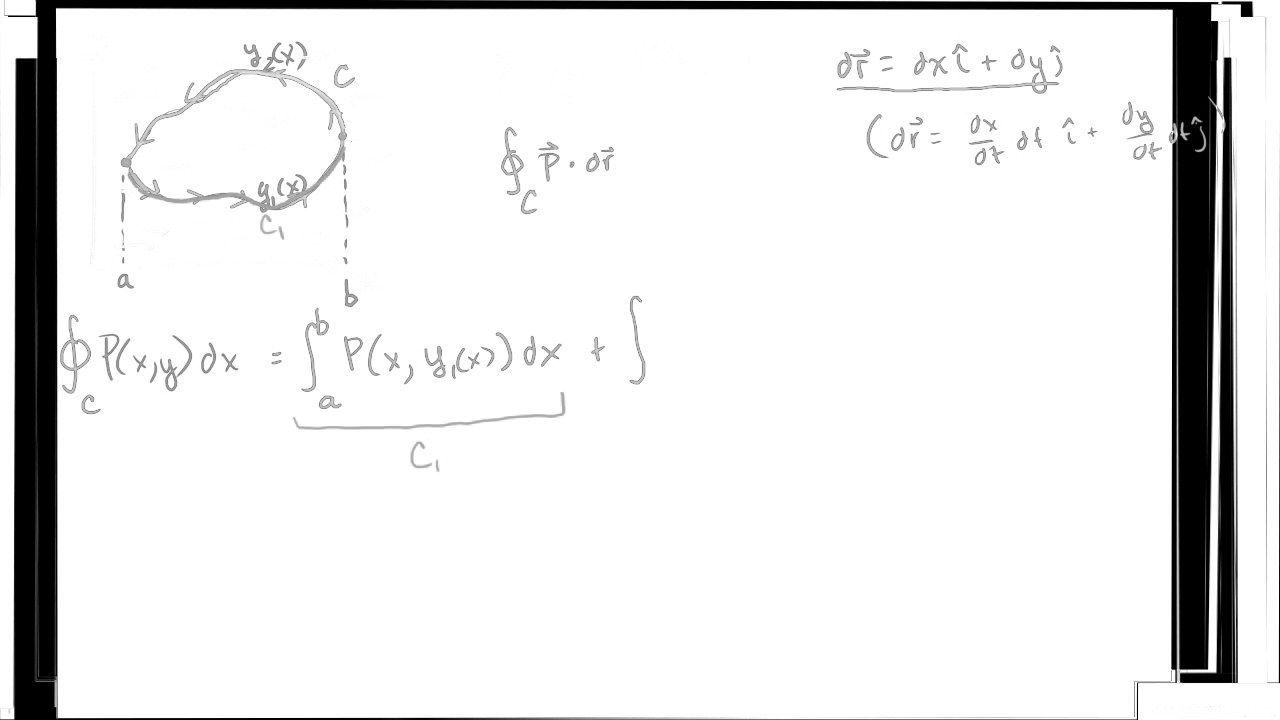 y₂(x)
C
y₁(x)
C₁
a
b
∮_C P⃗ · dr⃗
dr⃗ = dx î + dy ĵ
(dr⃗ = dx/dt dt î + dy/dt dt ĵ)
∮_C P(x,y) dx = ∫_a^b P(x, y₁(x)) dx + ∫
C₁